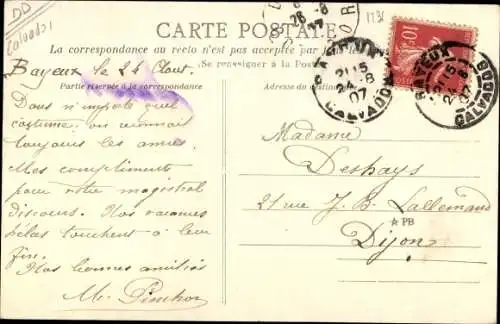 DD
Calvados
CARTE POSTALE
La correspondance au recto n'est pas acceptée par
(Se renseigner à la Poste)
Partie réservée à la correspondance
Adresse du destinataire
26 -8
07
BAYEUX
21 15
24 -8
07
CALVADOS
BAYEUX
CALVADOS
10
Bayeux le 24 Aout.
Dans n'importe quel
costume, on connait
toujours les amis.
Mes compliments
pour votre magistral
discours. Nos vacances
hélas touchent à leur
fin.
Nos bonnes amitiés
M.
Madame
Deshays
21 rue J. B. Lallemand
PB
Dijon